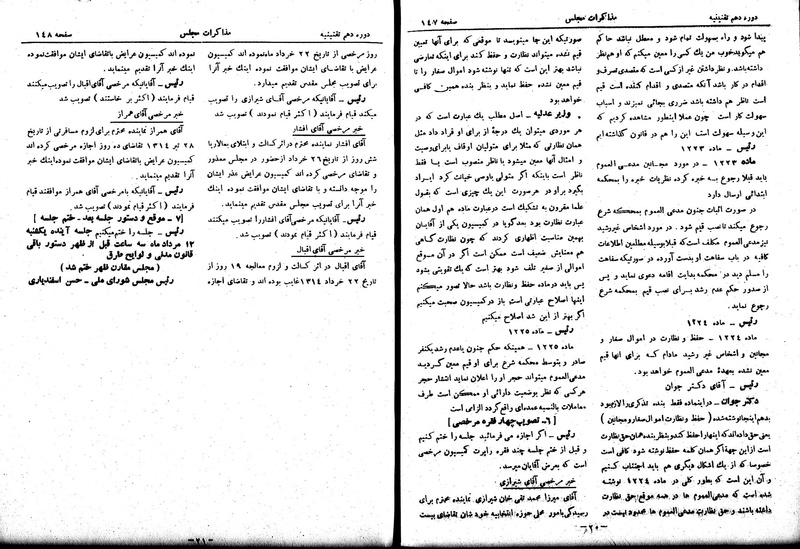 دوره دهم تقنینیه
مذاکرات مجلس
صفحه ۱۴۷
پیدا شود و راه بسهولت تمام شود و معطل نباشد حا کم
هم میگویدخوب من یك کسی را معین میکنم که او هم نظر
داشته باشد. و نظر داشتن غیر از کسی است که متصدی تصرف و
اقدام در کار باشد آنکه متصدی و اقدام کننده است قیم
است ناظر هم داشته باشد ضرری بجائی نمیزند و اسباب
سهولت کار است چون عملا اینطور مشاهده کردیم که
این وسیله سهولت است این را هم در قانون گذاشته ایم
رئیس ـ ماده ۱۲۲۳
ماده ۱۲۲۳ ـ در مورد مجـانین مدعـی العموم
باید قبلا رجوع بـه خبره کرده نظریات خبره را بمحکمه
ابتدائی ارسال دارد
در صورت اثبات جنون مدعی العموم بمحکمه شرع
رجوع میکند تا نصب قیم شود . در مورد اشخاص غیر رشید
نیز مدعی العموم مکلف است که قبلا بوسیله مطلعین اطلاعات
کافیه در باب سفاهت او بدست آورده در صورتیکه سفاهت
را مسلم دید در محکمه بدایت اقامه دعوی نماید و پس
از صدور حکم عدم رشد بـرای نصب قیم بمحکمه شرع
رجوع نماید.
رئیس ـ ماده ۱۲۲۴
ماده ۱۲۲۴ ـ حفظ و نظارت در اموال صغار و
مجانین و اشخاص غیر رشید مادام کـه برای آنها قیم
معین نشده بعهدهٔ مدعی العموم خواهد بود.
رئیس ـ آقای دکتر جوان
دکتر جوان ـ در اینماده فقط بنده تذکری را لازم بود
بدهم اینجا نوشته شده ( حفظ و نظارت اموال صغار و مجانین )
یعنی حق داده اند که اینها را حفظ کنند و بنظر بنده همان حق نظارت
است از این جهة اگر همان کلمه حفظ نوشته شود کافی است
خصوصا که از یك اشکال دیگری هم باید اجتناب کنیم
و آن این است که بطور کلی در ماده ۱۲۲۴ نوشته
شده است که مدعی العموم ها در همه موقع حق نظارت
داشته باشند و حق نظارت مدعی العموم ها محدود نیست در
صورتیکه این جا مینویسد تا موقعی که برای آنها تعیین
قیم نشده میتواند نظارت و حفظ کند برای اینکه تعارضی
نباشد بهتر این است که تنها نوشته شود اموال صغار را تا
تعیین قیم حفظ نماید و بنظر بنده همین کافی
خواهد بود
وزیر عدلیه ـ اصل مطلب یك عبارت است که در
هر موردی میتوان یك درجهٔ از برای او قراد داد مثل
همان نظارتی که مثلا برای متولیان اوقاف یا برای وصیت
و امثال آنها معین میشود یا ناظر منصوب است یا فقط
ناظر است بابنکه اگر متولی یا وصی خیانت کرد ایراد
بگیرد براو در هرصورت این یك چیزی است که بقول
علما مقرون به تشکیك است در عبارت ماده هم اول همان
عبارت نظارت بود بعد گویا در کمیسیون یکی از آقایان
بهمین مناسبت اظهاری کردند که چون نظارت گاهی
هم معنایش ضعیف است ممکن است اگر در آن موقع
اموالی از صغیر تلف شود بهتر است که یك تقویتی بشود
پس باید در ماده حفظ و نظارت باشد حالا تصور میکنم
اینها اصلاح عبارتی است باز در کمیسیون صحبت میکنیم
اگر بهتر از این شد اصلاح میکنیم
رئیس ـ ماده ۱۲۲۵
ماده ۱۲۲۵ ـ همینکه حکم جنون یا عدم رشد یکنفر
صادر و بتوسط محکمه شرع برای او قیم معین گـردیـد
مدعی العموم میتواند حجر او را اعلان نماید انتشار حجر
هر کسی که نظر بوضعیت دارائی او ممکن است طرف
معاملات بالنسبه عمده ای واقع گردد الزامی است
[ ۶ ـ تصویب چهار فقره مرخصی ]
رئیس ـ اگر اجازه می فرمائید جلسه را ختم کنیم
و قبل از ختم جلسه چند فقره راپرت کمیسیون مرخصی
است که بعرض آقایان میرسد.
خبر مرخصی آقای شیرازی
آقای میرزا محمد تقی خان شیرازی نماینده محترم برای
رسیدگی بامور محلی حوزه انتخابیه خود شان تقاضای بیست
ـ۲۰ـ
دوره دهم تقنینیه
مذاکرات مجلس
صفحه ۱۴۸
روز مرخصی از تاریخ ۲۲ خرداد ماه نموده اند کمیسیون
عرایض با تقاضای ایشان موافقت نموده اینك خبر آنرا
برای تصویب مجلس مقدس تقدیم میدارد.
رئیس ـ آقایانیکه مرخصی آقای شیرازی را تصویب
میکنند قیام فرمایند ( اکثر قیام نمودند ) تصویب شد
خبر مرخصی آقای افشار
آقای افشار نماینده محترم در اثر کسالت و ابتلای بمالاریا
شش روز از تاریخ ۲۶ خرداد از حضور در مجلس معذور
و تقاضای مرخصی کرده اند کمیسیون عرایض عذر ایشان
را موجه دانسته و با تقاضای ایشان موافقت نموده اینك
خبر آنرا برای تصویب مجلس مقدس تقدیم مینماید.
رئیس ـ آقایانیکه مرخصی آقای افشار را تصویب میکنند
قیام فرمایند ( اکثر قیام نمودند ) تصویب شد.
خبر مرخصی آقای اقبال
آقای اقبال در اثر کسالت و لزوم معالجه ۱۹ روز از
تاریخ ۲۲ خرداد ۱۳۱۴ غایب بوده اند و تقاضای اجازه
نموده اند کمیسیون عرایض با تقاضای ایشان موافقت نموده
اینك خبر آنرا تقدیم مینماید.
رئیس ـ آقایانیکه مرخصی آقای اقبال را تصویب میکنند
قیام فرمایند (اکثر بر خاستند ) تصویب شد
خبر مرخصی آقای همراز
آقای همراز نماینده محترم برای لزوم مسافرتی از تاریخ
۲۸ تیر ۱۳۱۴ تقاضای ده روز اجازه مرخصی کرده اند
کمیسیون عرایض با تقاضای ایشان موافقت نموده اینك خبر
آنرا تقدیم مینماید.
رئیس ـ آقایانیکه با مرخصی آقای همراز موافقند قیام
فرمایند ( اکثر قیام نمودند ) تصویب شد.
[ ۷ ـ موقع و دستور جلسه بعد ـ ختم جلسه ]
رئیس ـ جلسه را ختم میکنیم جلسه آینده یکشنبه
۱۲ مرداد ماه سه ساعت قبل از ظهر دستور باقی
قانون مدنی و لوایح طارق
( مجلس مقارن ظهر ختم شد )
رئیس مجلس شورای ملی ـ حسن اسفندیاری
ـ۲۱ـ